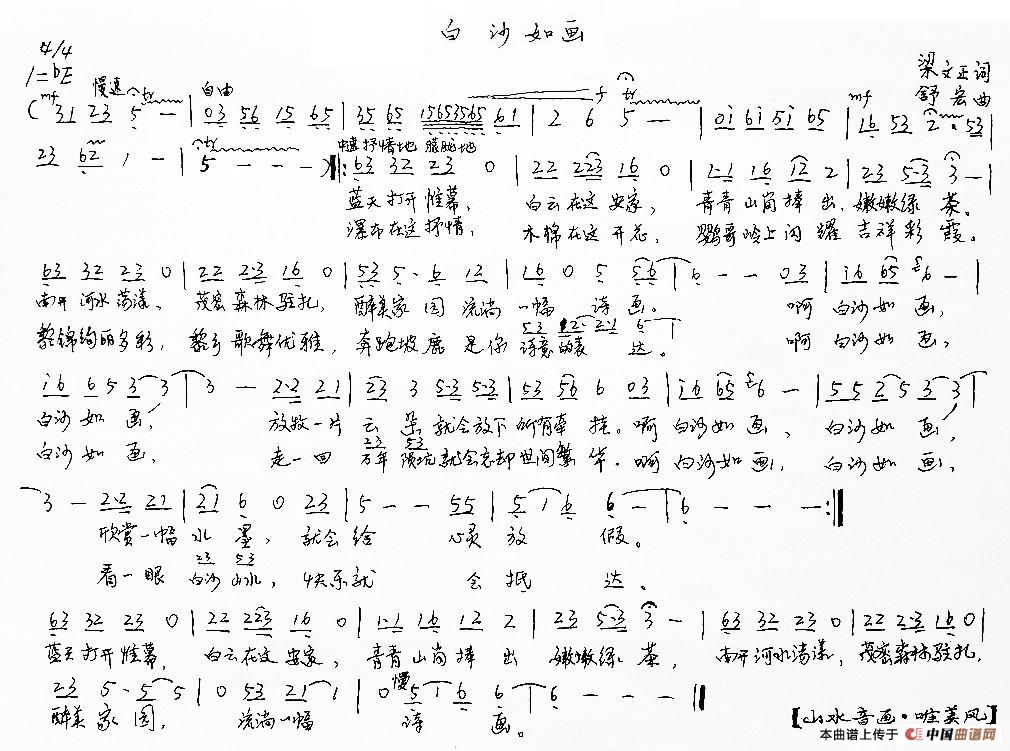 白沙如画
4/4
1=bE
梁文正词
舒宏曲
慢速 自由
mf f mf
(31 23 5 - | 03 56 15 65 | 35 65 15653565 61 | 2 6 5 - | 0i 6i 5i 65 | 16 53 2 · 53
23 62 1 - | 5 - - -) ‖: 63 32 23 0 | 22 223 16 0 | 1·1 16 12 2 | 23 5·3 3 - |
抒情地
蓝天打开帷幕, 白云在这安家, 青青山岗捧出, 嫩嫩绿茶。
瀑布在这抒情, 木棉在这开花, 鹦哥岭上闪耀吉祥彩霞。
63 32 23 0 | 22 2·3 16 0 | 53 5·6 12 | 16 0 5 56 | 6 - - 03 | i6 65 6 - |
南开河水荡漾, 茂密森林驻扎, 醉美家园流淌一幅诗画。 啊白沙如画,
黎锦绚丽多彩, 黎乡歌舞优雅, 奔跑坡鹿是你诗意的表达。 啊白沙如画,
i6 6 5 3 3 | 3 - 2·2 21 | 23 3 5·3 5·3 | 53 56 6 03 | i6 65 6 - | 5 5 2 5 3 3 |
白沙如画, 放牧一片云朵就会放下所有牵挂。啊白沙如画、 白沙如画,
白沙如画, 走一回万年陨坑就会忘却世间繁华. 啊白沙如画, 白沙如画,
3 - 2·2 21 | 21 6 0 23 | 5 - - 55 | 5 1 6 6 - | 6 - - - :‖
欣赏一幅水墨, 就会给心灵放假。
看一眼白沙山水, 快乐就会抵达。
63 32 23 0 | 22 223 16 0 | 1·1 16 12 2 | 23 5·3 3 - | 63 32 23 0 | 22 2·3 16 0 |
蓝天打开帷幕, 白云在这安家, 青青山岗捧出嫩嫩绿茶, 南开河水荡漾, 茂密森林驻扎,
2·3 5·5 5 | 0 53 21 1 | 0 5 1 6 6 | 6 - - - ‖
慢
醉美家园, 流淌一幅诗画。
【山水音画·唯美风】
本曲谱上传于 中国曲谱网